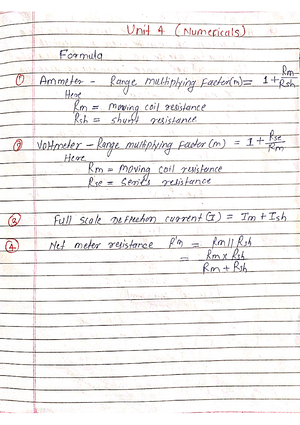 Unit 4 (Numericals)
Formula
① Ammeter - Range multiplying Factor(m) = 1 + Rm/Rsh
Here
Rm = moving coil resistance
Rsh = shunt resistance
② Voltmeter - Range multiplying Factor (m) = 1 + Rse/Rm
Here
Rm = Moving coil resistance
Rse = Series resistance
③ Full Scale Deflection current (I) = Im + Ish
④ Net meter resistance R'm = Rm || Rsh
= Rm x Rsh
Rm + Rsh